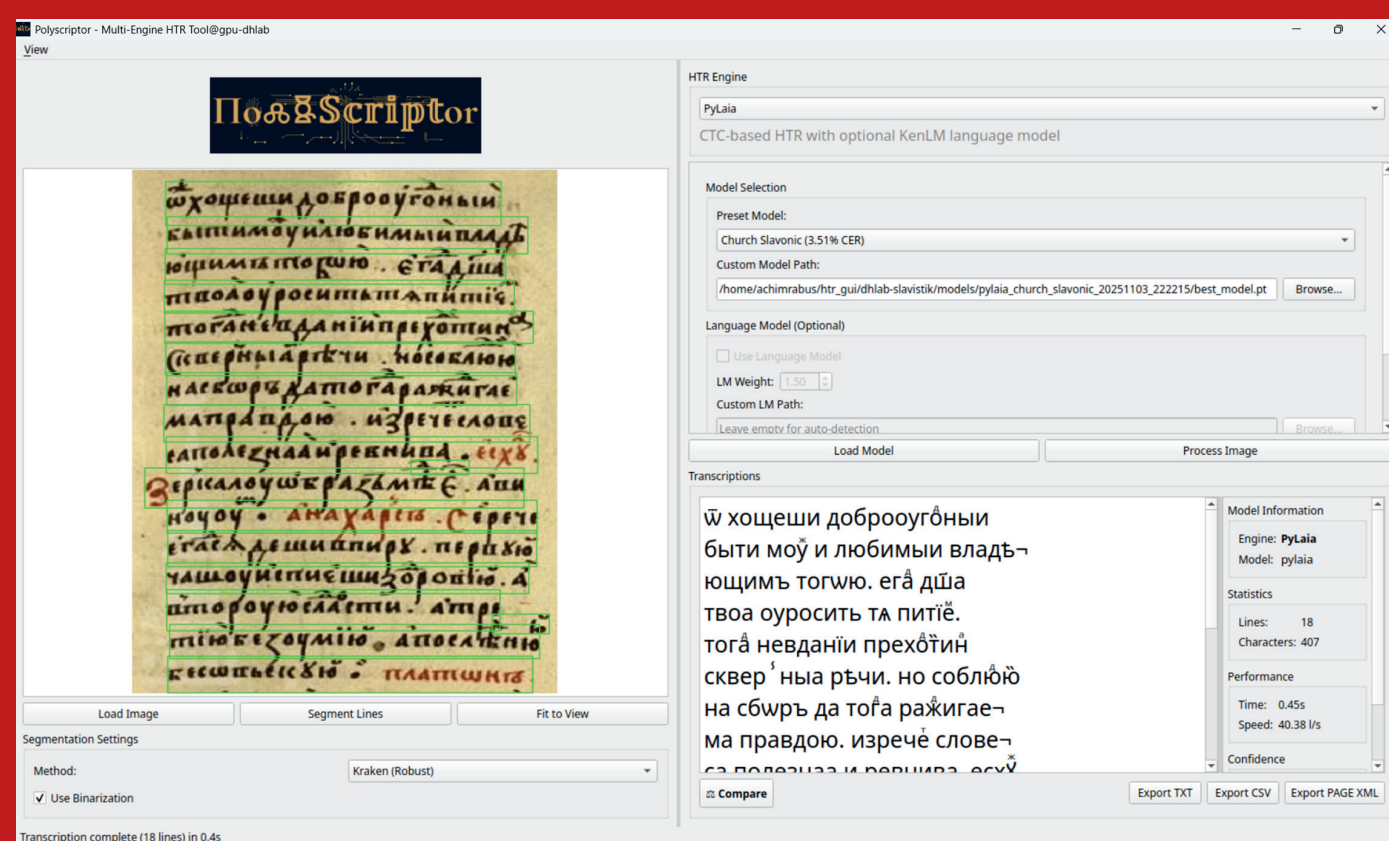 Polyscriptor - Multi-Engine HTR Tool@gpu-dhlab
View
ПолꙋScriptor
ѿхощешидоброоугоⷣныи
бытимоуⷤилюбимыивладѣ
ющимътогѡю. егаⷣдш҃а
твоаоуроситьтѧпитїеⷨ.
тогаⷣневданїипрехоⷣтинⷶ
скверныарѣчи. нособлюⷣю
насбѡръдатогаⷣражигае
маправдою. изречеⷮслове
саполезнааиревнива. есхꙋⷤ.
ноуоу. анахарсїѧ. Срече
чашоу
тїюбезоумїю.
платѡнъ
Load Image
Segment Lines
Fit to View
Segmentation Settings
Method:
Kraken (Robust)
✓ Use Binarization
Transcription complete (18 lines) in 0.4s
HTR Engine
PyLaia
CTC-based HTR with optional KenLM language model
Model Selection
Preset Model:
Church Slavonic (3.51% CER)
Custom Model Path:
/home/achimrabus/htr_gui/dhlab-slavistik/models/pylaia_church_slavonic_20251103_222215/best_model.pt
Browse...
Language Model (Optional)
Use Language Model
LM Weight: 1.50
Custom LM Path:
Leave empty for auto-detection
Browse...
Load Model
Process Image
Transcriptions
ѿ хощеши доброоугоⷣныи
быти моуⷤ и любимыи владѣ¬
ющимъ тогѡю. егаⷣ дш҃а
твоа оуросить тѧ питїеⷨ.
тогаⷣ невданїи прехоⷣт҆инⷶ
сквер ҆ ныа рѣчи. но соблюⷣю҆
на сбѡръ да тогаⷣ ражⷣигае¬
ма правдою. изречеⷮ слове¬
са полезнаа и ревнива. есхꙋⷤ
Model Information
Engine: PyLaia
Model: pylaia
Statistics
Lines: 18
Characters: 407
Performance
Time: 0.45s
Speed: 40.38 l/s
Confidence
⚖ Compare
Export TXT
Export CSV
Export PAGE XML